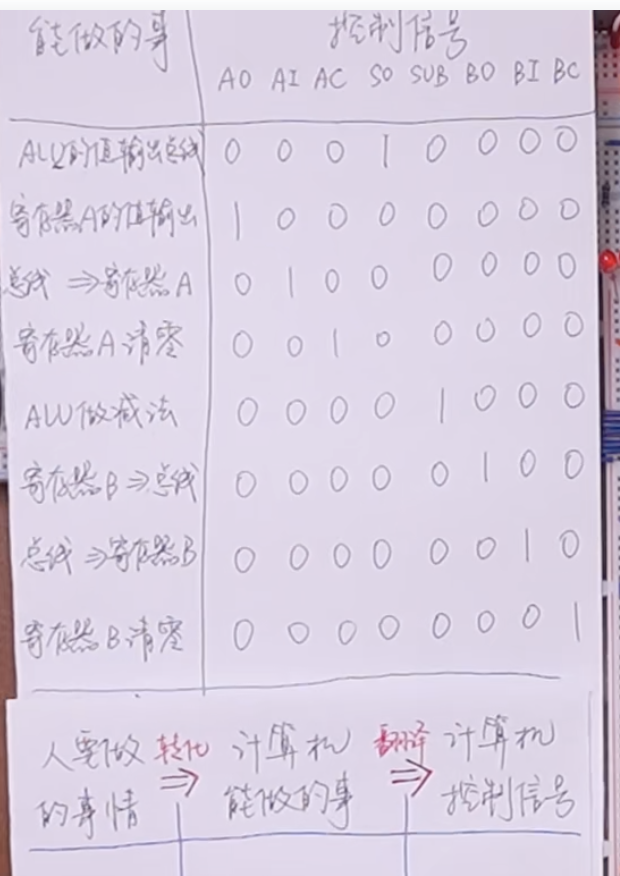 能做的事 控制信号
AO AI AC SO SUB BO BI BC
ALU的值输出总线 0 0 0 1 0 0 0 0
寄存器A的值输出 1 0 0 0 0 0 0 0
总线 ⇒寄存器A 0 1 0 0 0 0 0 0
寄存器A清零 0 0 1 0 0 0 0 0
ALU做减法 0 0 0 0 1 0 0 0
寄存器B⇒总线 0 0 0 0 0 1 0 0
总线⇒寄存器B 0 0 0 0 0 0 1 0
寄存器B清零 0 0 0 0 0 0 0 1
人要做 转化 计算机 翻译 计算机
的事情 ⇒ 能做的事 ⇒ 控制信号